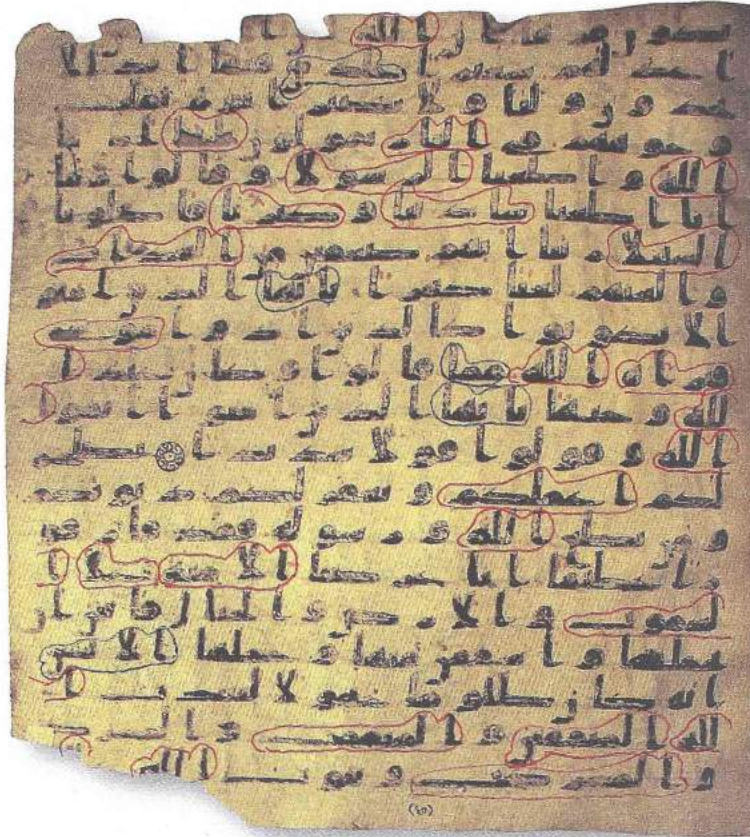 ان الله
اعد لهم سعيرا خلدين فيها ابدا لا
يجدون وليا ولا نصيرا يوم تقلب
وجوههم في النار يقولون يليتنا اطعنا
الله واطعنا الرسولا وقالوا ربنا
انا اطعنا سادتنا وكبرانا فاضلونا
السبيلا ربنا اتهم ضعفين من العذاب
والعنهم لعنا كبيرا يايها الذين امنو
ا لا تكونوا كالذين اذوا موسى
فبراه الله مما قالوا وكان عند ا
لله وجيها يايها الذين امنوا اتقوا
الله وقولوا قولا سديدا يصلح
لكم اعملكم ويغفر لكم ذنوبكم
ومن يطع الله ورسوله فقد فاز فو
زا عظيما انا عرضنا الامنة على ا
لسموت والارض والجبال فابين ان
يحملنها واشفقن منها وحملها الانسن
انه كان ظلوما جهولا ليعذب ا
لله المنفقين والمنفقت
والمشركت ويتوب الله
(٤٣)